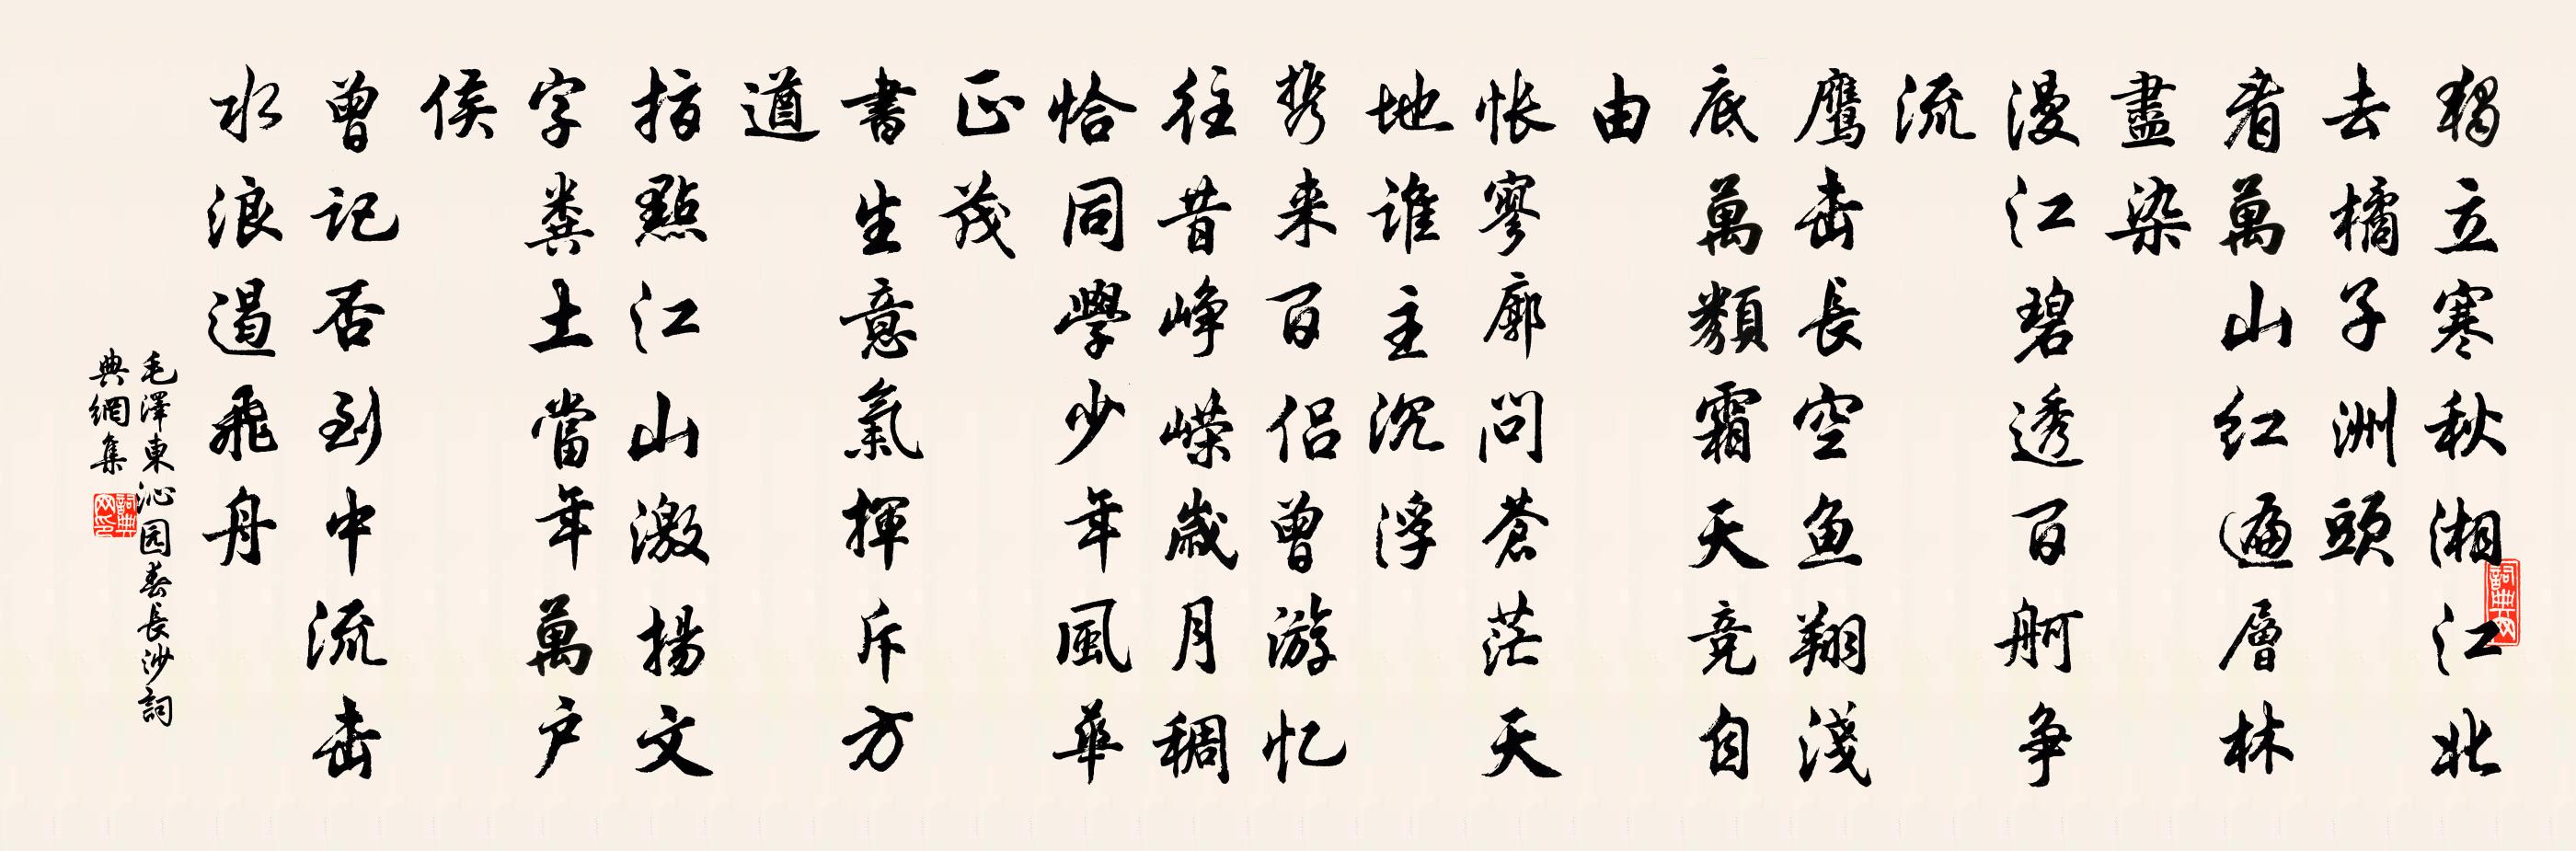 獨立寒秋湘江北
去橘子洲頭
看萬山红遍層林
盡染
漫江碧透百舸争
流
鹰击長空鱼翔淺
底萬類霜天竞自
由
怅寥廓问蒼茫大
地谁主沉浮
携来百侣曾游忆
往昔峥嵘歲月稠
恰同學少年風華
正茂
書生意氣揮斥方
遒
指點江山激揚文
字糞土當年萬户
侯
曾记否到中流击
水浪遏飛舟
毛澤東沁园春長沙詞
典網集
詞典网
詞典网印